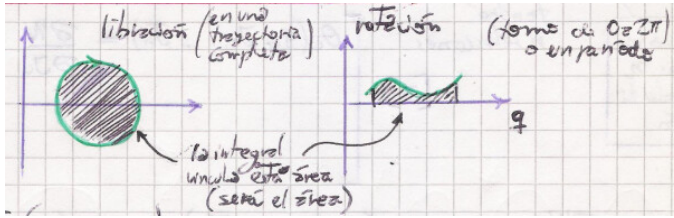 libración (en una
trayectoria
completa)
rotación (tomo de 0 a 2π)
o un período
q
la integral
vincula esta área
(será el área)